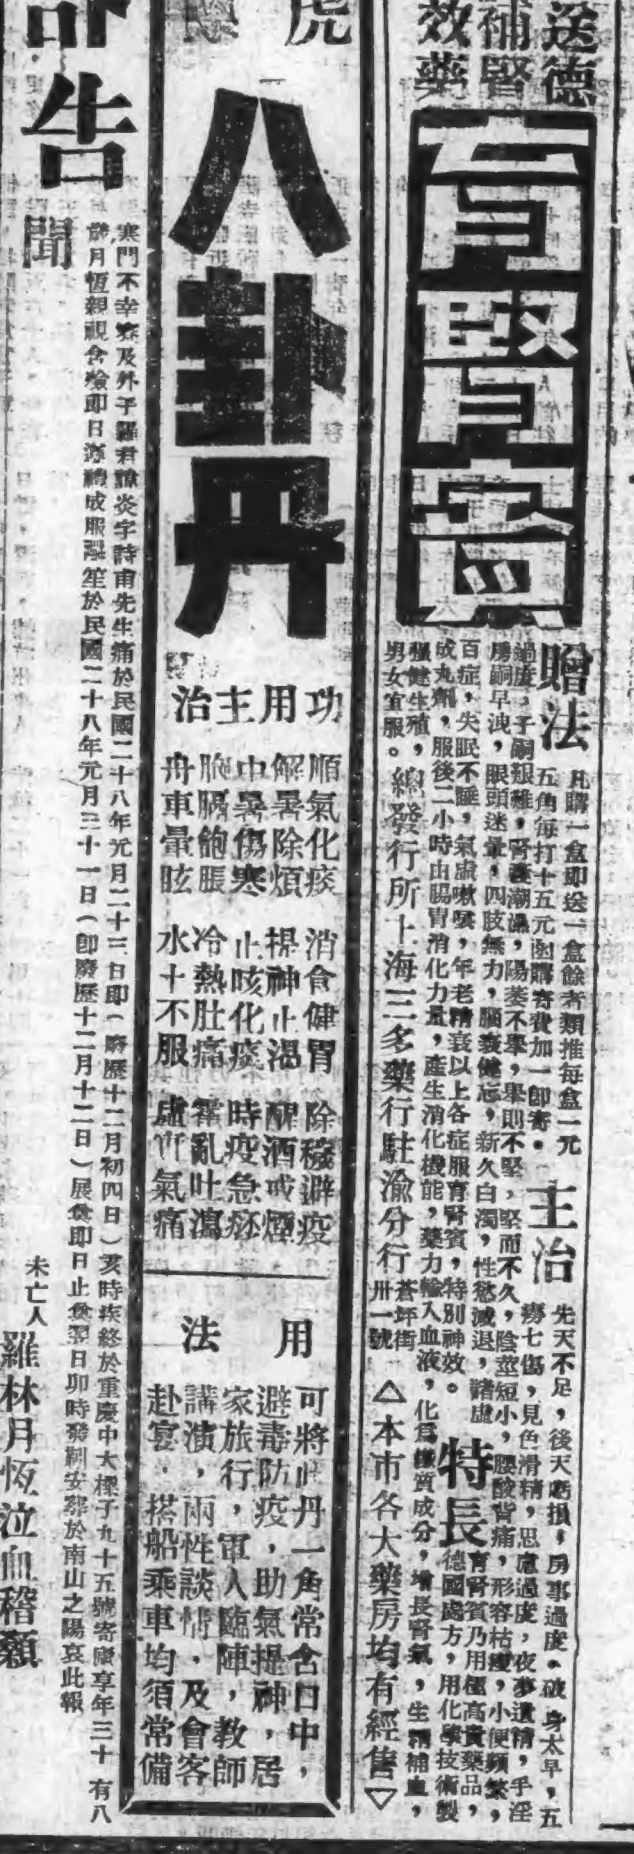 送德
補腎
效藥
育腎賓
贈法
凡購一盒即送一盒餘者類推每盒一元
五角每打十五元函購寄費加一即寄。
主治
先天不足，後天虧損，房事過度，破身太早，五
癆七傷，見色滑精，思慮過度，夜夢遺精，手淫
過度，子嗣艱難，腎囊潮濕，陽萎不舉，舉則不堅，堅而不久，陰莖短小，腰酸背痛，形容枯瘦，小便頻繁，
房嗣早洩，眼頭迷暈，四肢無力，腦衰健忘，新久白濁，性慾減退，諸虛
百症，失眠不睡，氣虛嗽喘，年老精衰以上各症服育腎賓，特別神效。
特長
育腎賓乃用極高貴藥品，
德國處方，用化學技術製
成丸劑，服後二小時由腸胃消化力量，產生消化機能，藥力輸入血液，化為鐵質成分，增長腎氣，生精補血，
強健生殖，
男女宜服。
總發行所上海三多藥行駐渝分行
蒼坪街
卅一號
△本市各大藥房均有經售▽
虎
八卦丹
功用主治
順氣化痰 消食健胃 除穢避疫
解暑除煩 提神止渴 醒酒戒煙
中暑傷寒 止咳化痰 時疫急痧
胸膈飽脹 冷熱肚痛 霍亂吐瀉
舟車暈眩 水土不服 虛疝氣痛
用法
可將此丹一角常含口中，
避毒防疫，助氣提神，居
家旅行，軍人臨陣，教師
講演，兩性談情，及會客
赴宴，搭船乘車均須常備
訃告
聞
寒門不幸寡及外子羅君諱炎字詩甫先生痛於民國二十八年元月二十三日即（廢歷十二月初四日）亥時疾終於重慶中大樑子九十五號寄廬享年三十有八
歲月恆親視含殮即日遵禮成服謹筮於民國二十八年元月三十一日（即廢歷十二月十二日）展奠即日止奠翌日卯時發靷安葬於南山之陽哀此報
未亡人
羅林月恆泣血稽顙